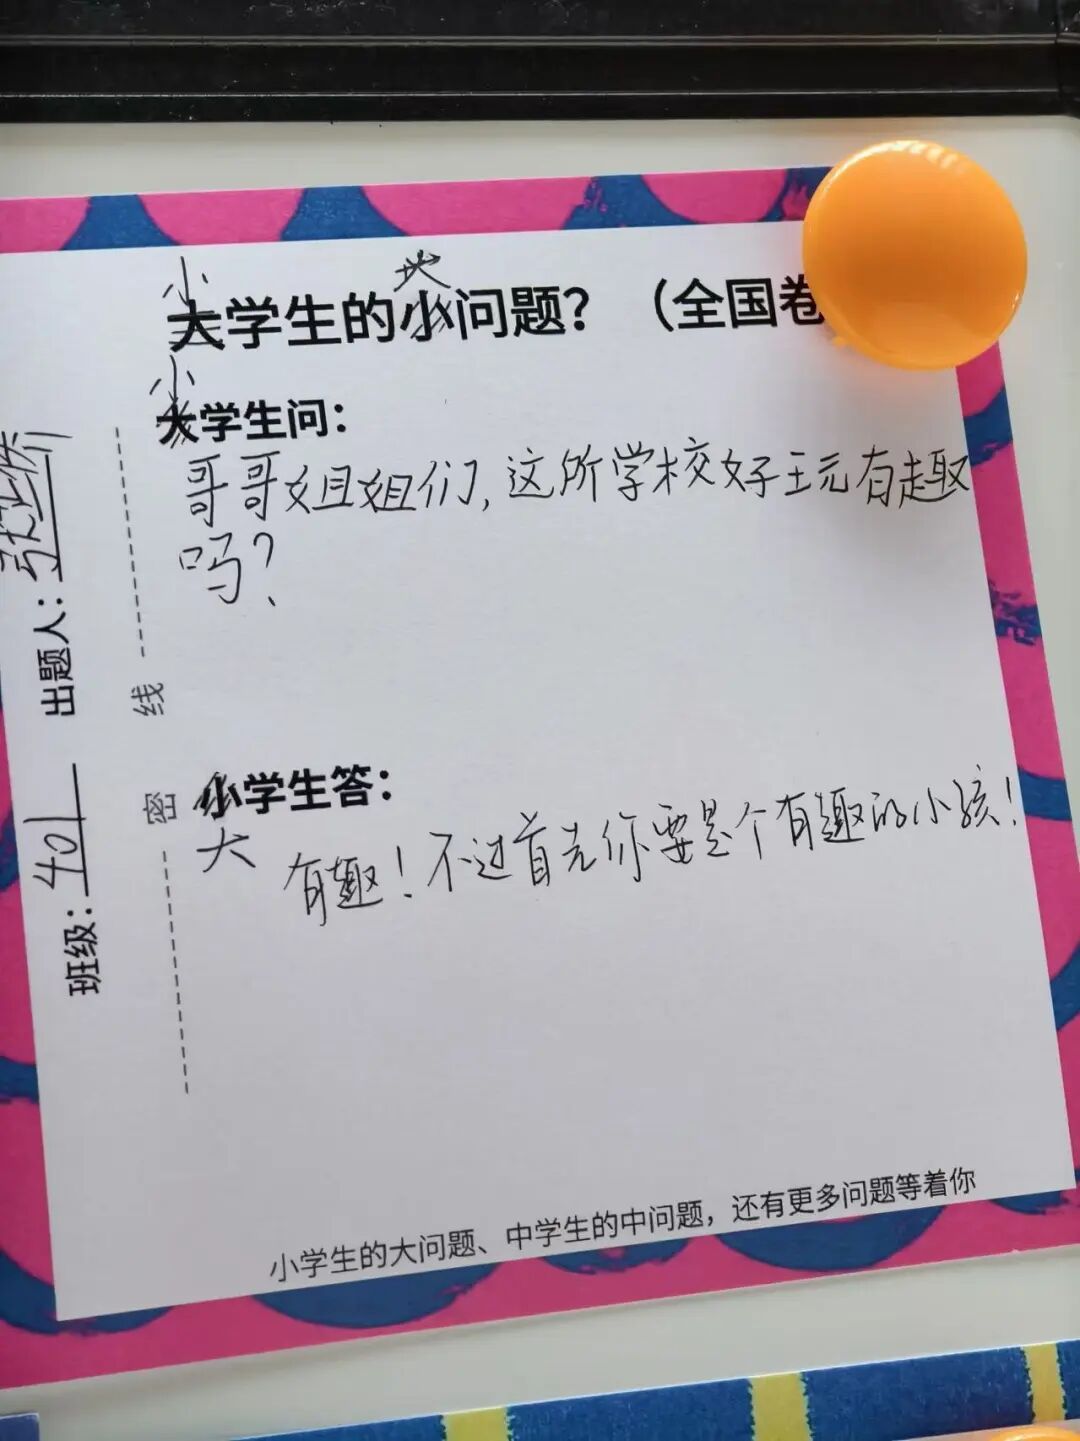 小学生的大问题？（全国卷
小学生问：
哥哥姐姐们，这所学校好玩有趣
吗？
小学生答：
大
有趣！不过首先你要是个有趣的小孩！
小学生的大问题、中学生的中问题，还有更多问题等着你
班级：401 出题人：
密 线